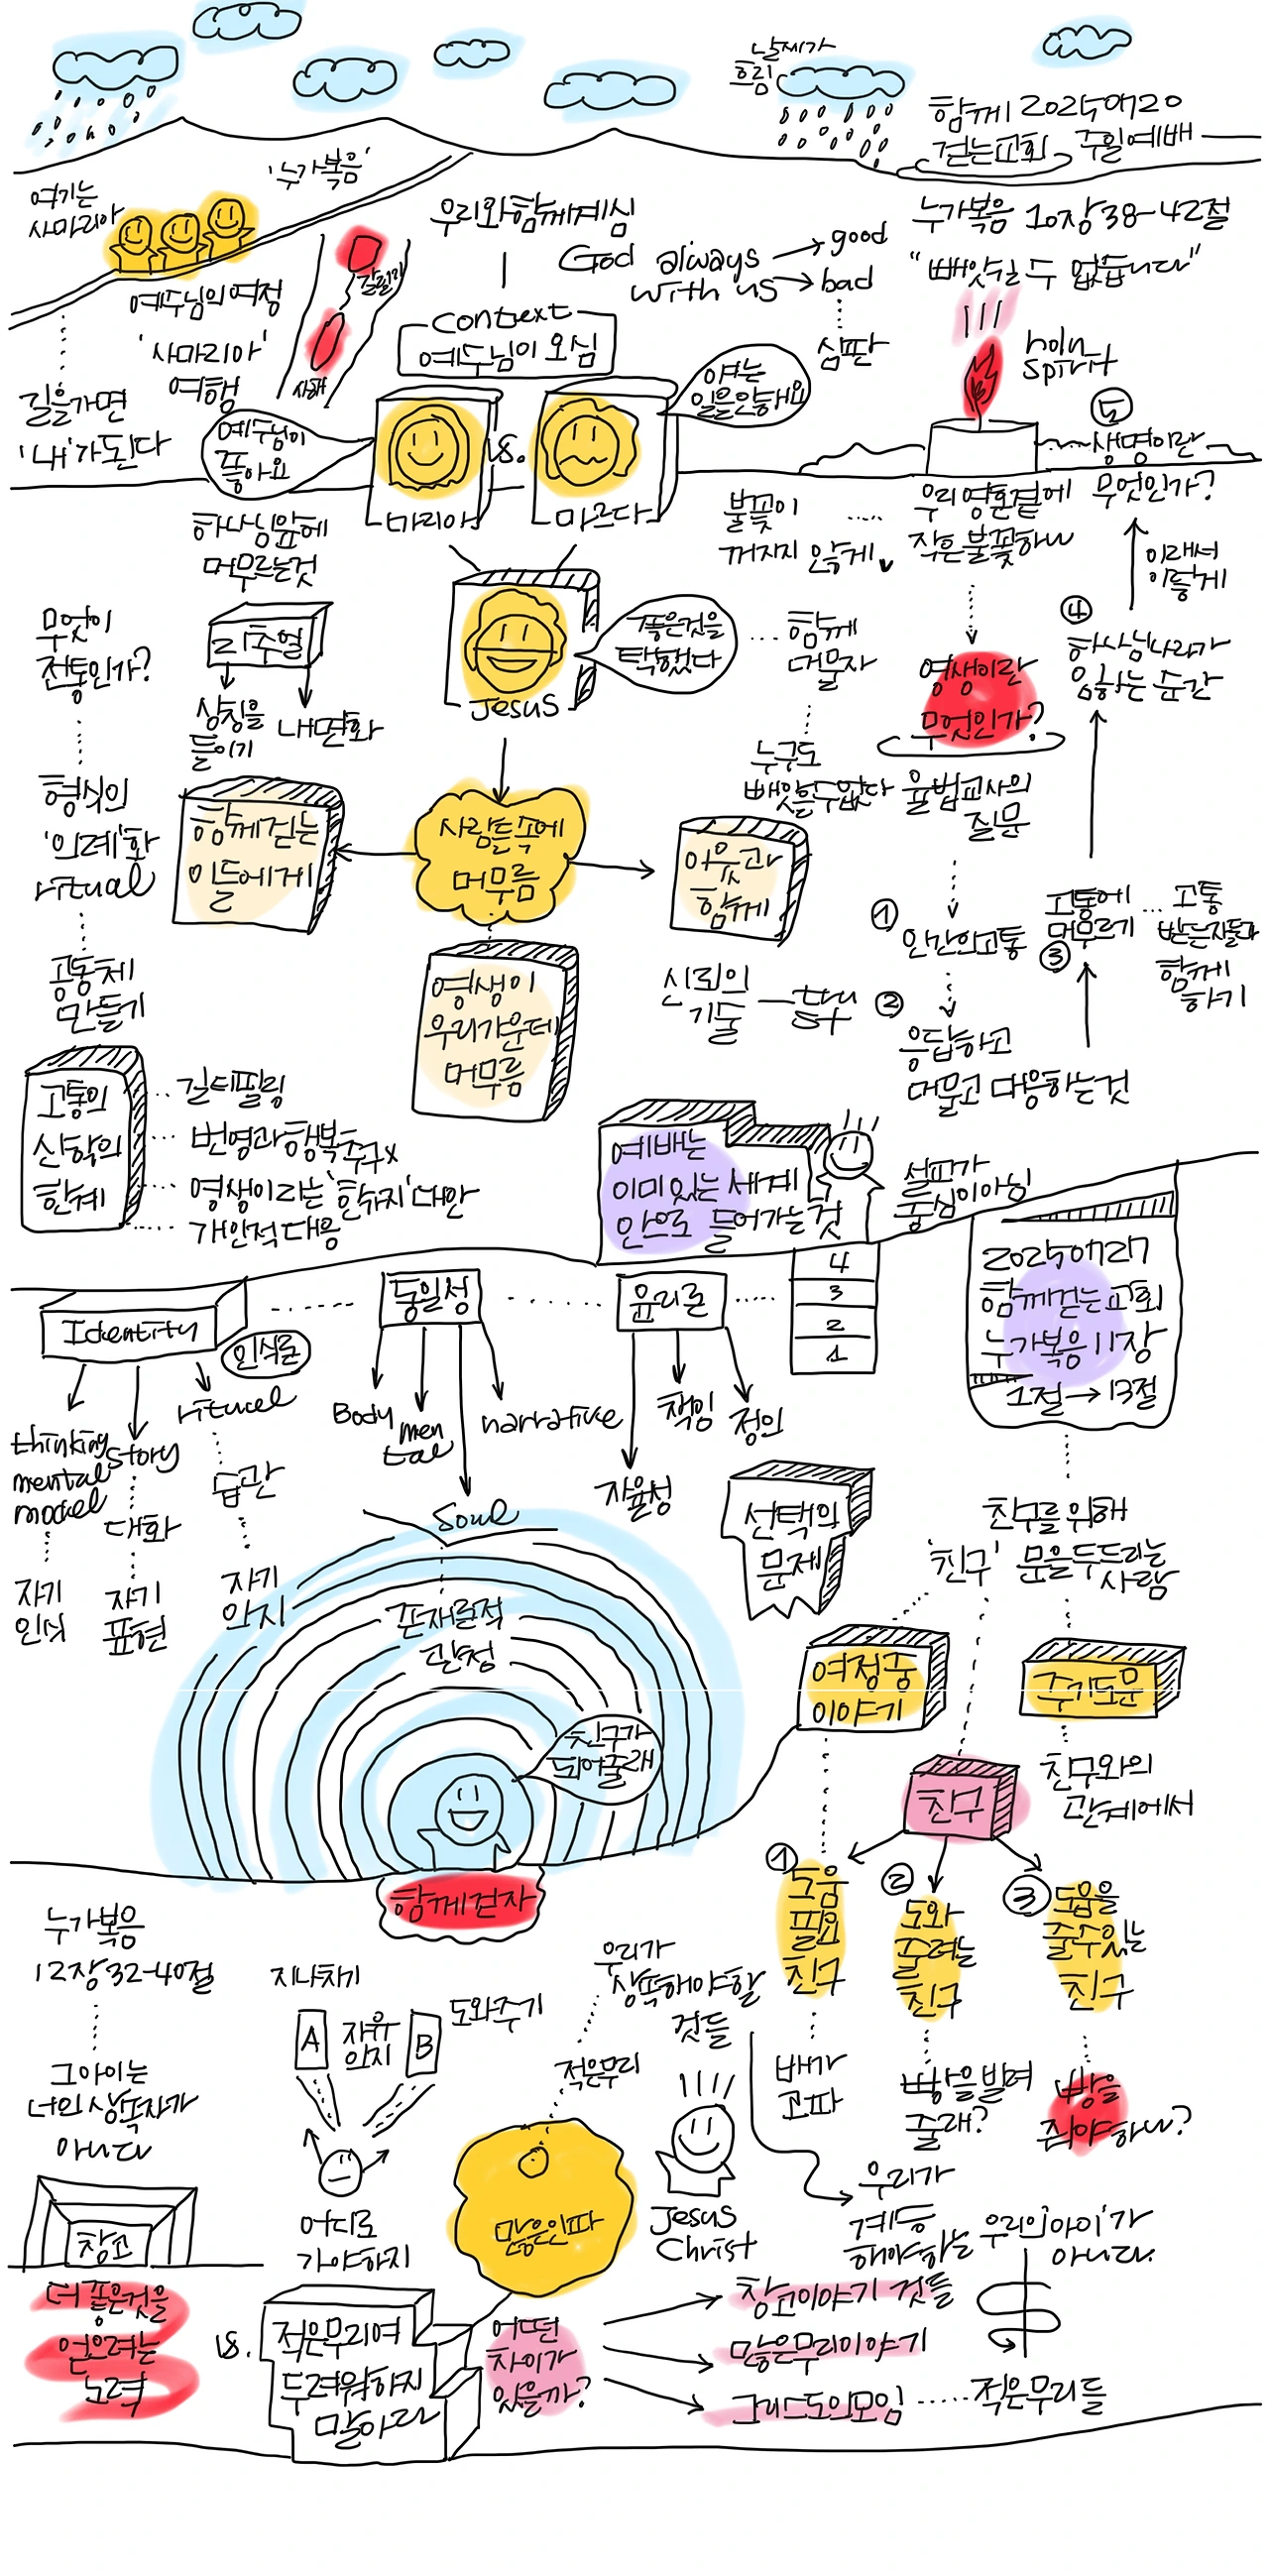 날씨가
흐림
함께 20250720
걷는교회 주일예배
'누가복음'
여기는
사마리아
예수님의 여정
'사마리아'
여행
갈릴리
사해
길을가면
'내'가된다
우리와함께계심
God always
with us
good
bad
심판
context
예수님이 오심
누가복음 10장38-42절
"빼앗길 수 없습니다"
holy
spirit
예수님이
좋아요
마리아
vs.
마르다
야는
일을안해요
하나님앞에
머무르는것
리추얼
상징을
들이기
내면화
Jesus
좋은것을
택했다
함께
머물자
누구도
빼앗을수없다
불꽃이
꺼지지 않게
우리영혼곁에
작은불꽃하나
⑤
생명이란
무엇인가?
이래서
이렇게
④
하나님나라가
임하는 순간
영생이란
무엇인가?
율법교사의
질문
①
인간의고통
②
응답하고
머물고 대응하는것
고통에
머무르기
③
고통
받는자들과
함께
하기
무엇이
전통인가?
형식의
'의례'화
ritual
공동체
만들기
함께걷는
이들에게
사람들속에
머무름
이웃과
함께
신뢰의
기술
영생이
우리가운데
머무름
고통의
신학의
한계
길티필링
번영과행복추구x
영생이라는'한가지'대안
개인적대응
예배는
이미있는 세계
안으로 들어가는것
설교가
중심이아님
4
3
2
1
20250727
함께걷는교회
누가복음11장
1절→13절
Identity
인식론
thinking
mental
model
story
ritual
대화
습관
자기
인식
자기
표현
자기
인지
동일성
Body
mental
narrative
Soul
윤리론
자율성
책임
정의
선택의
문제
존재론적
관점
친구가
되어줄래
함께걷자
친구를위해
'친구' 문을두드리는
사람
여정중
이야기
주기도문
친구와의
관계에서
친구
①
도움
필요
친구
②
도와
주려는
친구
③
도움을
줄수있는
친구
배가
고파
빵을빌려
줄래?
빵을
줘야하나?
누가복음
12장32-40절
그아이는
너의상속자가
아니다
창고
더좋은것을
얻으려는
노력
vs.
지나치기
A
자유
의지
B
도와주기
어디로
가야하지
적은무리여
두려워하지
말아라
우리가
상속해야할
것들
적은무리
많은인파
Jesus
Christ
우리가
계승
해야하는
것들
우리의'아이'가
아니다.
어떤
차이가
있을까?
창고이야기
많은무리이야기
그리스도의모임
적은무리들